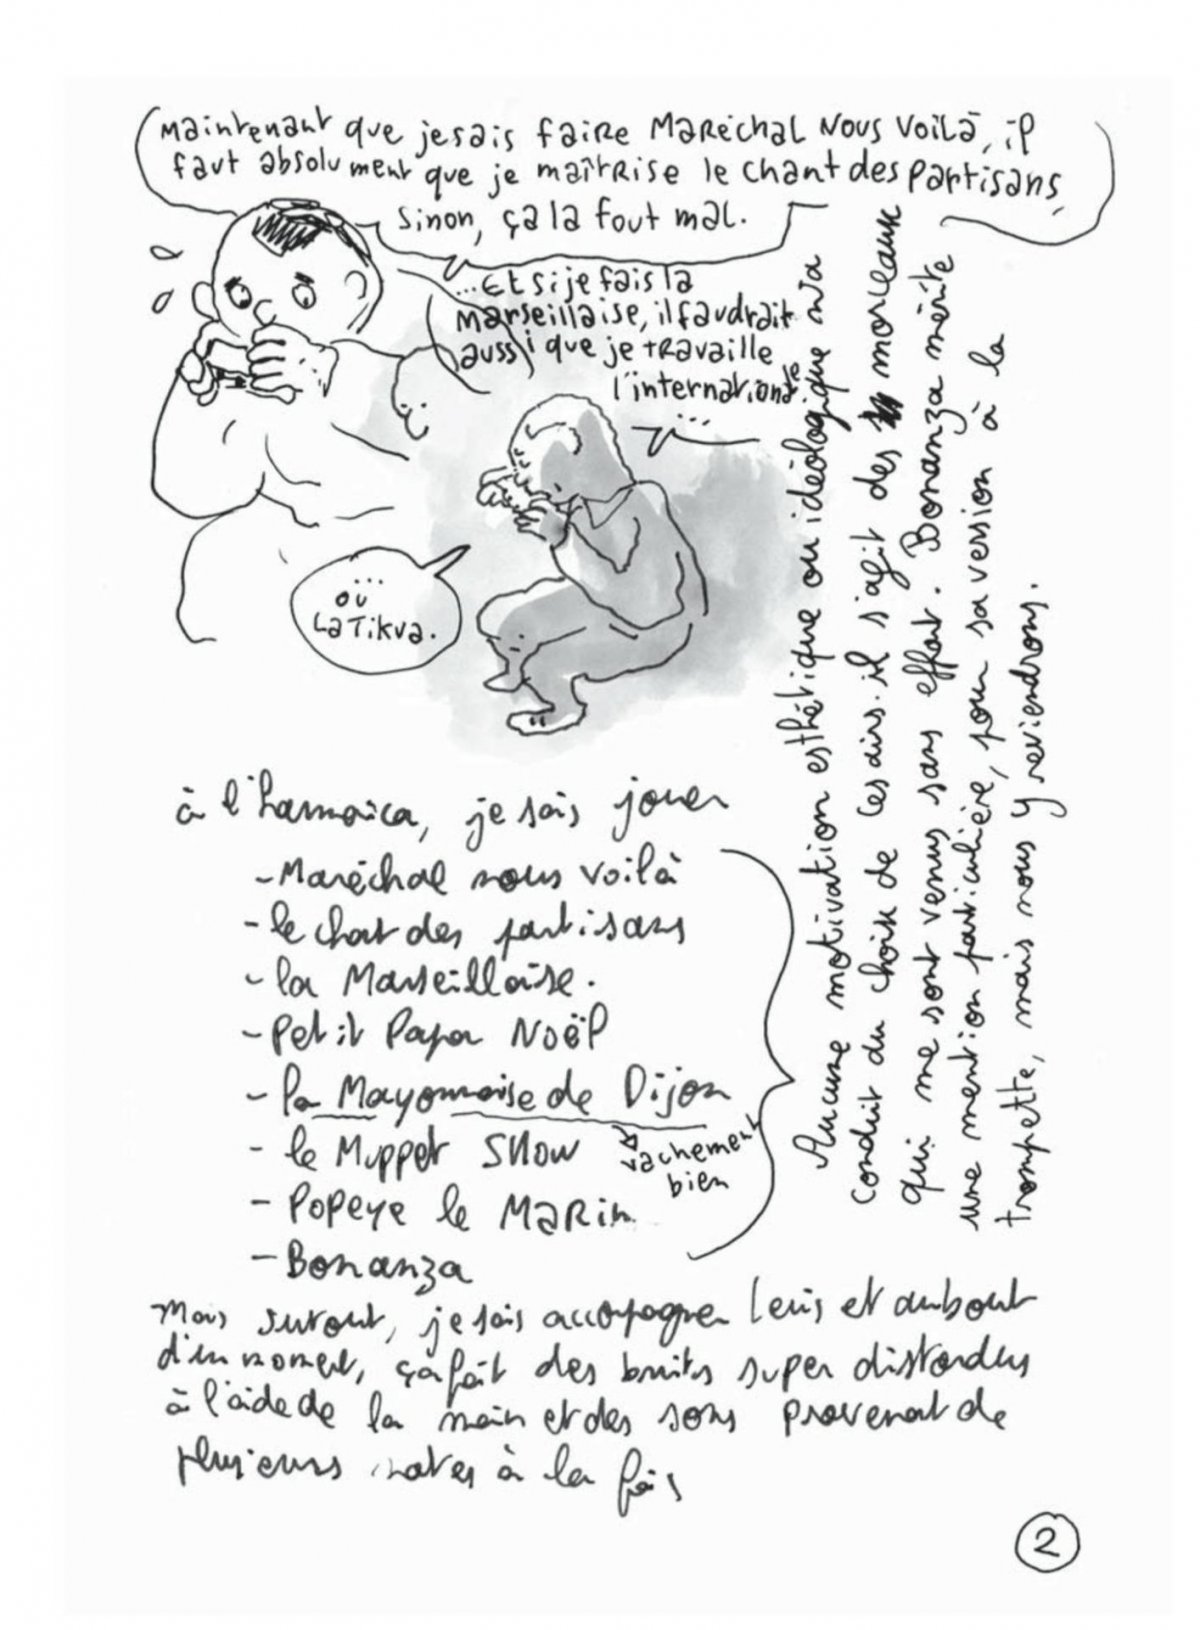 Maintenant que je sais faire Maréchal nous voilà, il
faut absolument que je maîtrise le chant des partisans,
sinon, ça la fout mal.
...Et si je fais la
marseillaise, il faudrait
aussi que je travaille
l'internationale.
...
...
ou
LaTikva.
à l'harmonica, je sais jouer
- Maréchal nous voilà
- le chat des partisans
- la Marseillaise.
- Petit Papa Noël
- la Mayonnaise de Dijon
vachement
bien
- le Muppet Show
- Popeye le Marin
- Bonanza
Aucune motivation esthétique ou idéologique m'a
conduit du choix de ces airs. il s'agit des morceaux
qui me sont venus sans effort. Bonanza mérite
une mention particulière, pour sa version à la
trompette, mais nous y reviendrons.
Mais surtout, je sais accompagner et au bout
d'un moment, ça fait des bruits super distordus
à l'aide de la main et des sons provenant de
plusieurs notes à la fois
2